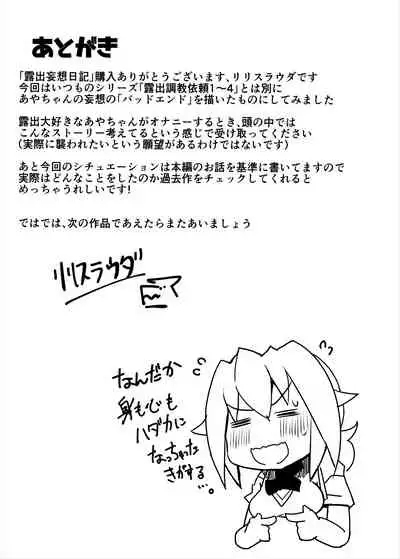 あとがき
「露出妄想日記」購入ありがとうございます、リリスラウダです
今回はいつものシリーズ「露出調教依頼1〜4」とは別に
あやちゃんの妄想の「バッドエンド」を描いたものにしてみました
露出大好きなあやちゃんがオナニーするとき、頭の中では
こんなストーリー考えてるという感じで受け取ってください
(実際に襲われたいという願望があるわけではないです)
あと今回のシチュエーションは本編のお話を基準に書いてますので
実際はどんなことをしたのか過去作をチェックしてくれると
めっちゃうれしいです!
ではでは、次の作品であえたらまたあいましょう
リリスラウダ
なんだか
身も心も
ハダカに
なっちゃった
きがする
…。